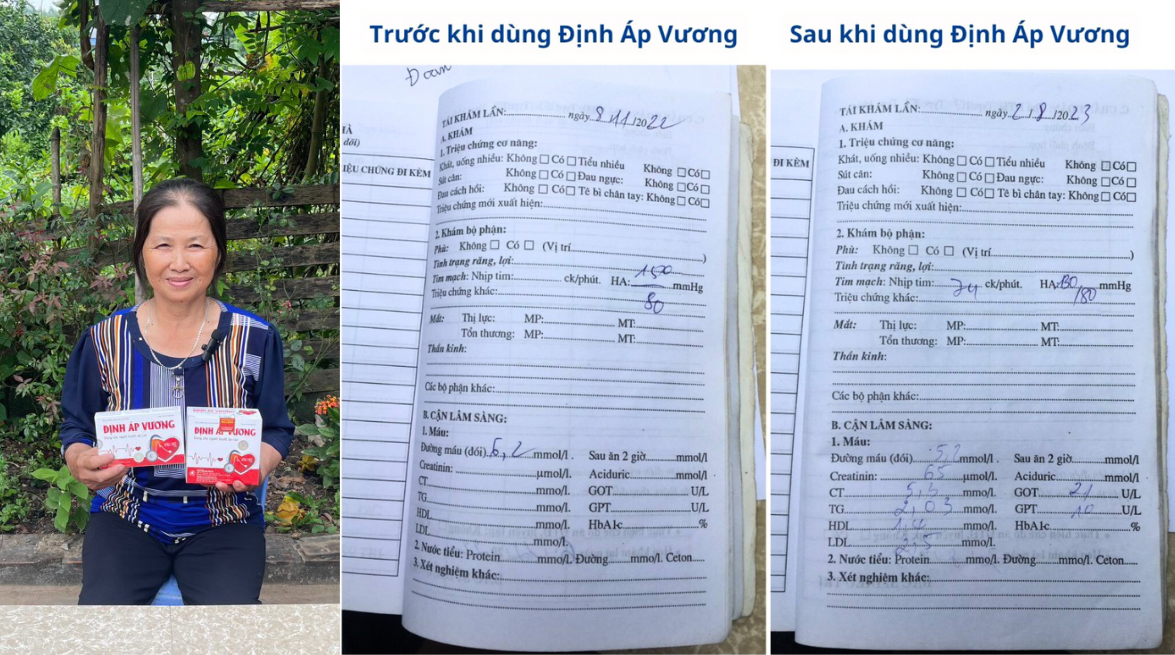 Trước khi dùng Định Áp Vương
Sau khi dùng Định Áp Vương
ĐỊNH ÁP VƯƠNG
ĐỊNH ÁP VƯƠNG
IỆU CHỨNG ĐI KÈM
TÁI KHÁM LẦN: ngày 8/11/2022
A. KHÁM
1. Triệu chứng cơ năng:
Khát, uống nhiều: Không □ Có □ Tiểu nhiều Không □ Có □
Sút cân: Không □ Có □ Đau ngực: Không □ Có □
Đau cách hồi: Không □ Có □ Tê bì chân tay: Không □ Có □
Triệu chứng mới xuất hiện:
2. Khám bộ phận:
Phù: Không □ Có □ (Vị trí )
Tình trạng răng, lợi:
Tim mạch: Nhịp tim: ck/phút. HA: 150 mmHg
80
Triệu chứng khác:
Mắt: Thị lực: MP: MT:
Tổn thương: MP: MT:
Thần kinh:
Các bộ phận khác:
B. CẬN LÂM SÀNG:
1. Máu:
Đường máu (đói) 6,2 mmol/l . Sau ăn 2 giờ mmol/l
Creatinin: µmol/l. Aciduric mmol/l
CT mmo/l. GOT U/L
TG mmo/l. GPT U/L
HDL mmo/l. HbA1c %
LDL mmo/l.
2. Nước tiểu: Protein mmol/l. Đường mmo/l. Ceton
3. Xét nghiệm khác:
ĐI KÈM
TÁI KHÁM LẦN: ngày 2/8/2023
A. KHÁM
1. Triệu chứng cơ năng:
Khát, uống nhiều: Không □ Có □ Tiểu nhiều Không □ Có □
Sút cân: Không □ Có □ Đau ngực: Không □ Có □
Đau cách hồi: Không □ Có □ Tê bì chân tay: Không □ Có □
Triệu chứng mới xuất hiện:
2. Khám bộ phận:
Phù: Không □ Có □ (Vị trí )
Tình trạng răng, lợi:
Tim mạch: Nhịp tim: 74 ck/phút. HA: mmHg
/80
Triệu chứng khác:
Mắt: Thị lực: MP: MT:
Tổn thương: MP: MT:
Thần kinh:
Các bộ phận khác:
B. CẬN LÂM SÀNG:
1. Máu:
Đường máu (đói) mmol/l . Sau ăn 2 giờ mmol/l
Creatinin: 65 µmol/l. Aciduric mmol/l
CT 5,5 mmo/l. GOT 21 U/L
TG 2,03 mmo/l. GPT 10 U/L
HDL mmo/l. HbA1c %
LDL mmo/l.
2. Nước tiểu: Protein mmol/l. Đường mmo/l. Ceton
3. Xét nghiệm khác: